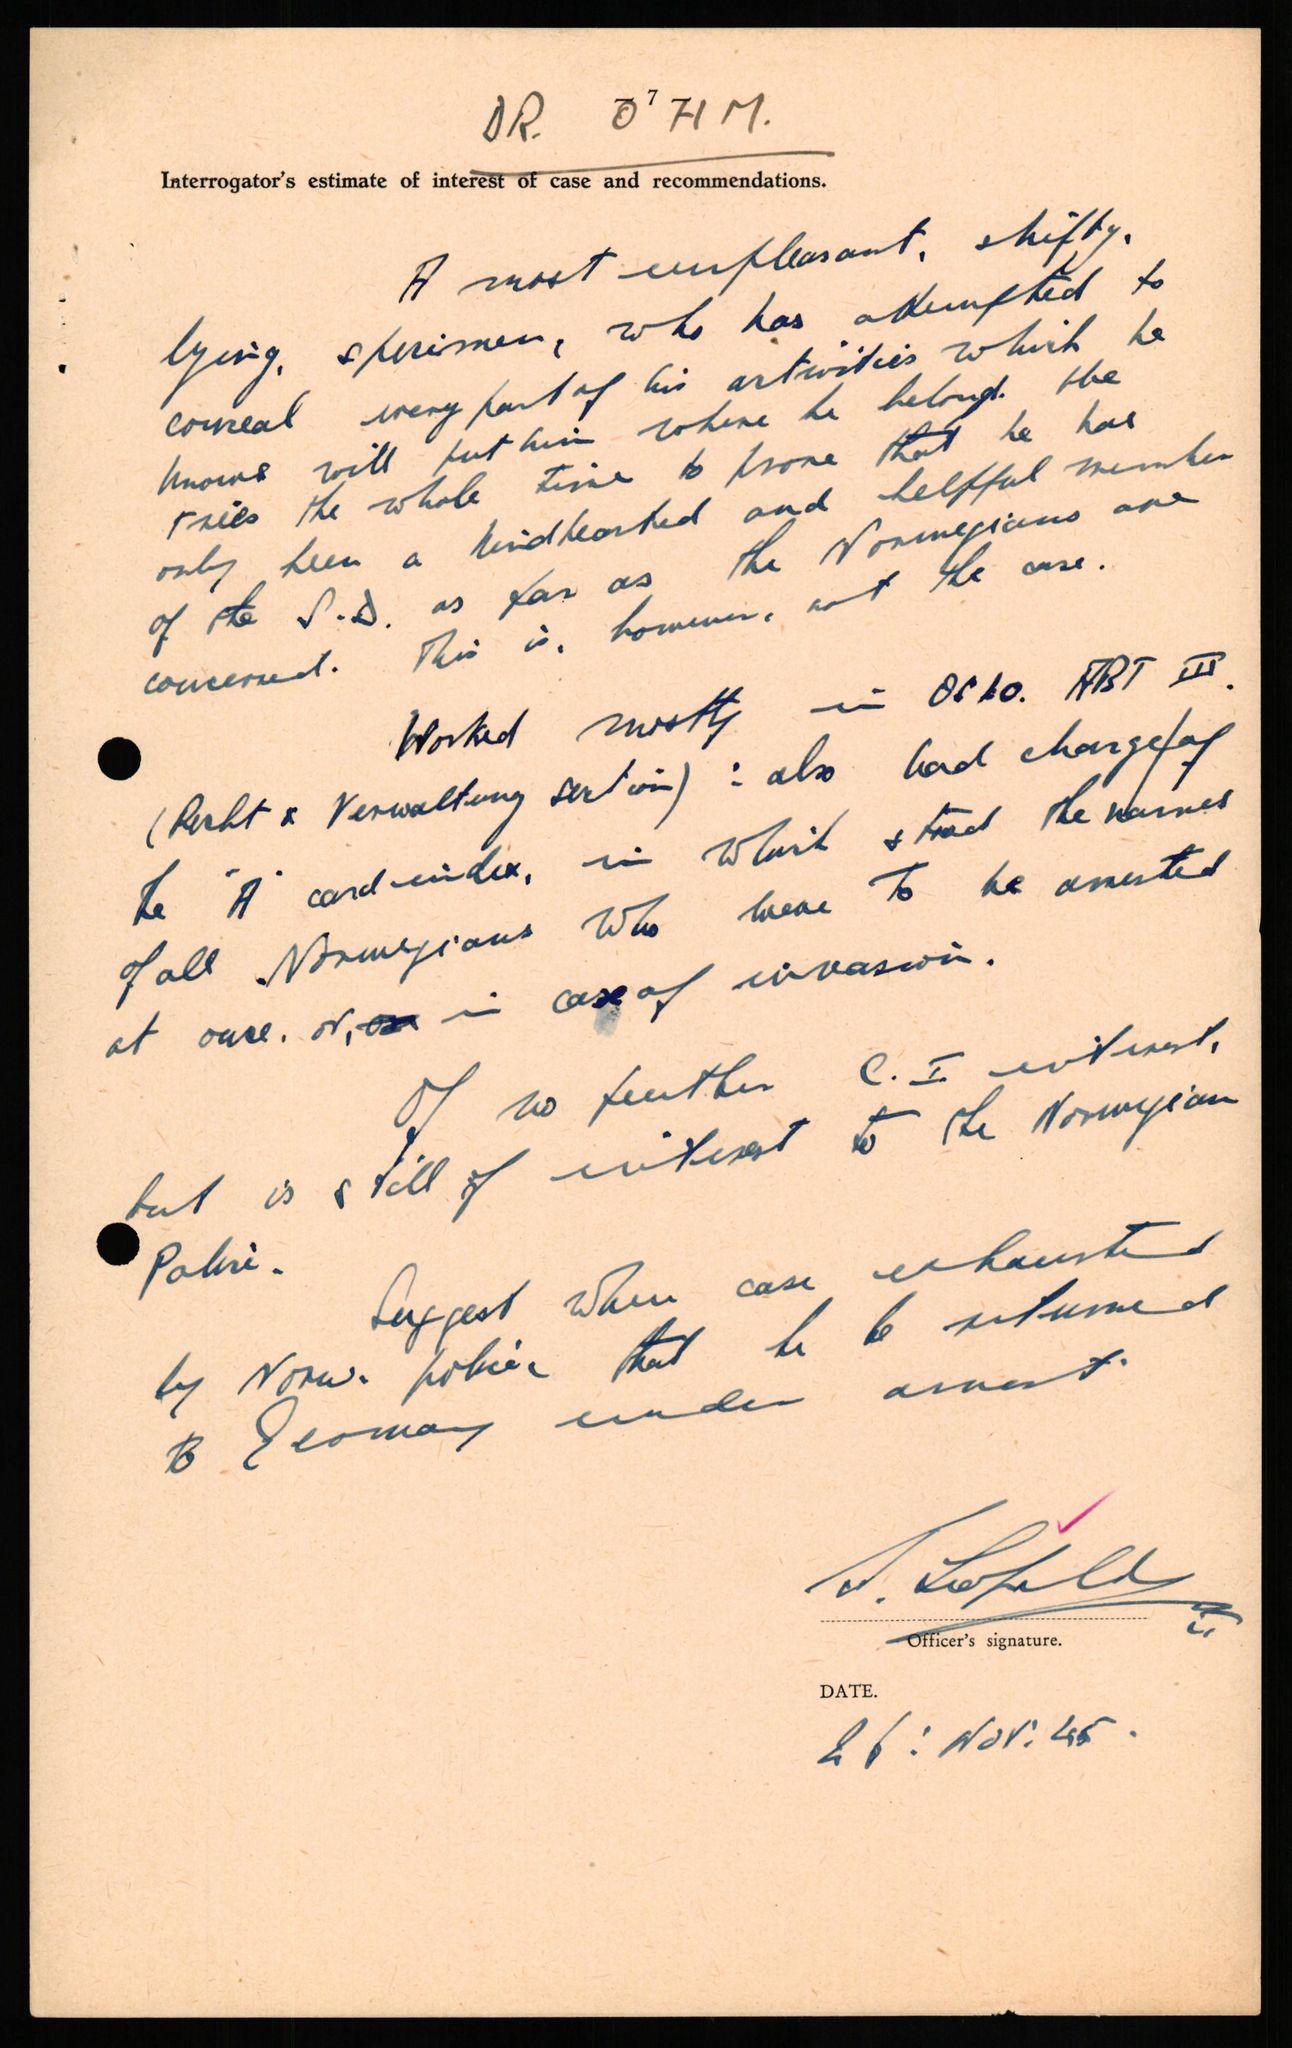 7
DR. OHM.
Interrogator's estimate of interest of case and recommendations.
A most unpleasant, shifty,
lying, specimen, who has attempted to
conceal every part of his activities which he
knows will put him where he belongs. He
tries the whole time to prove that he has
only been a kindhearted and helpful member
of the S.D. as far as the Norwegians are
concerned. This is, however, not the case.
Worked mostly in OSLO. ABT III.
(Recht & Verwaltung section) : also had charge of
the "A" card-index, in which stood the names
of all Norwegians who were to be arrested
at once. or, in case of invasion.
Of no further C.I. interest,
but is still of interest to the Norwegian
Police.
Suggest when case exhausted
by Norw. police that he be returned
to Germany under arrest.
Officer's signature.
DATE.
26 : Nov : 45.